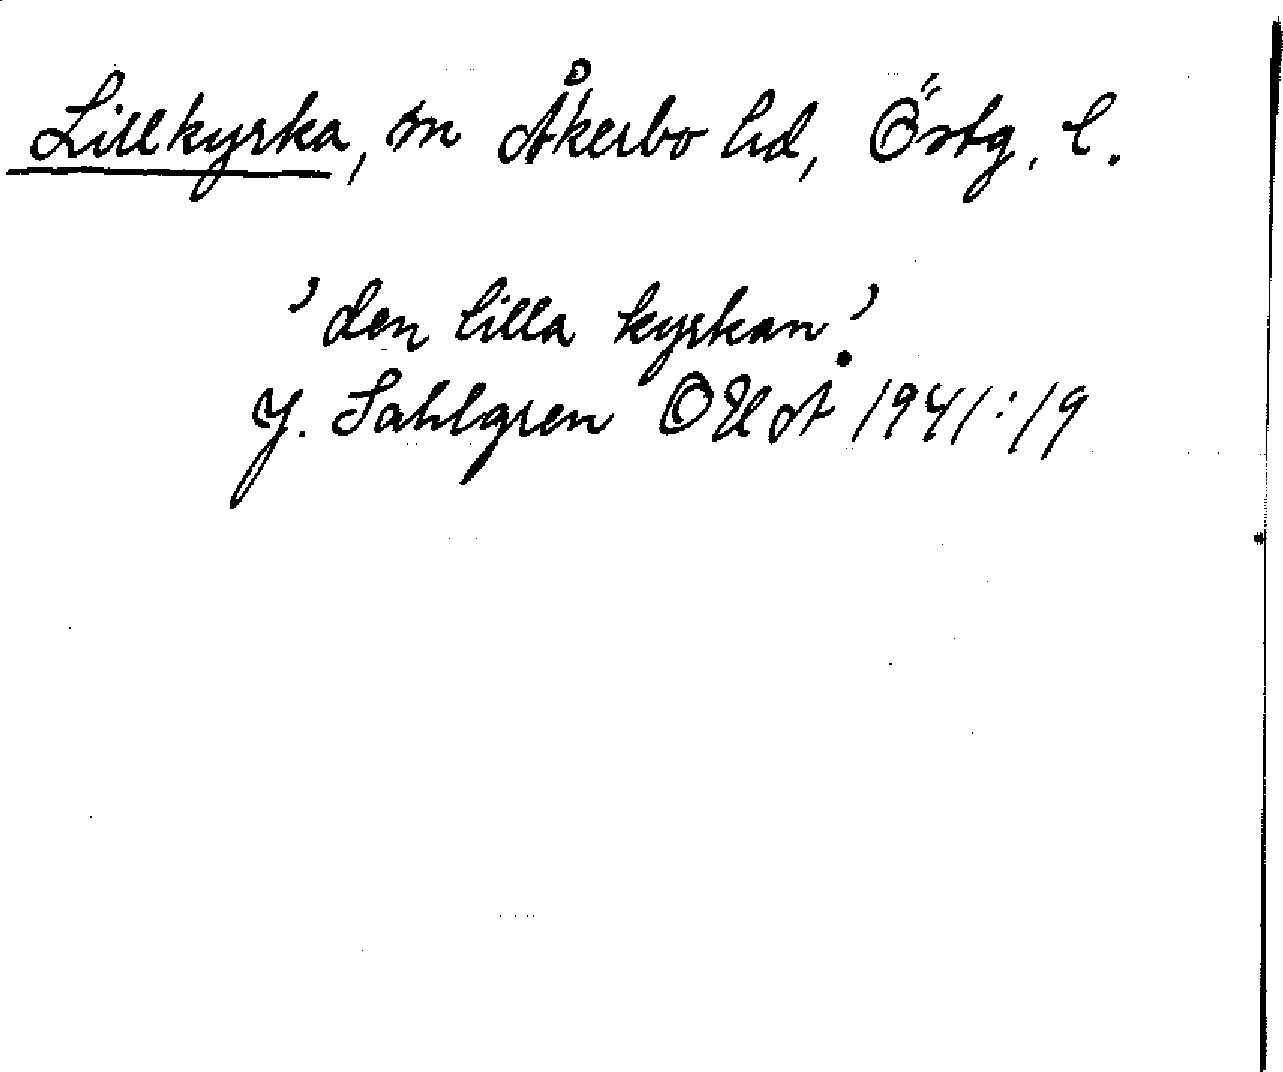 Lillkyrka, sn Åkerbo hd, Östg. l.
'den lilla kyrkan'.
J. Sahlgren OUÅ 1941:19